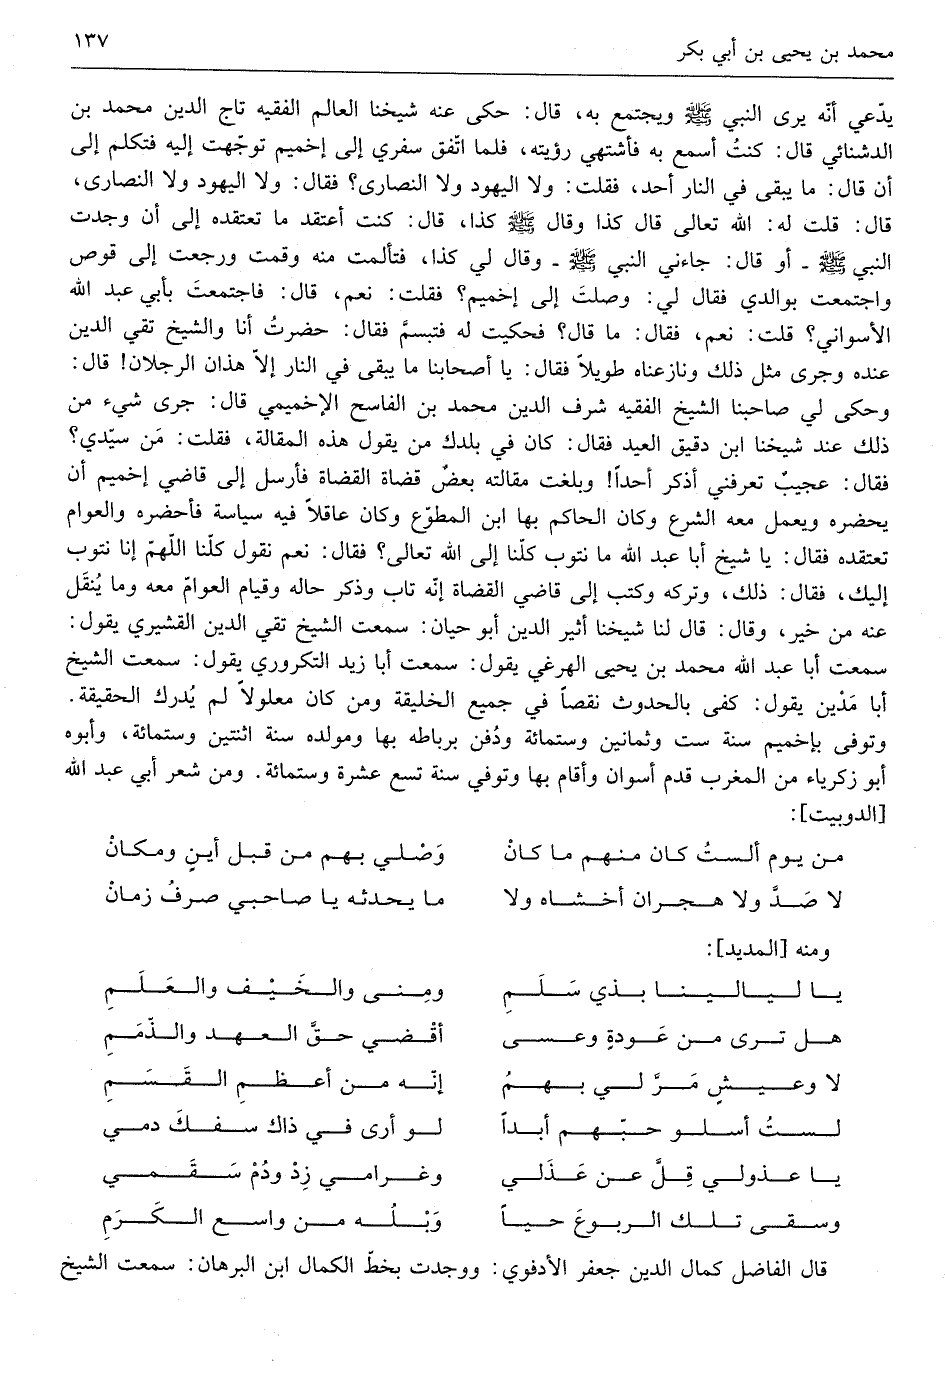 محمد بن يحيى بن أبي بكر ١٣٧
يدّعي أنّه يرى النبي ﷺ ويجتمع به، قال: حكى عنه شيخنا العالم الفقيه تاج الدين محمد بن
الدشنائي قال: كنتُ أسمع به فأشتهي رؤيته، فلما اتّفق سفري إلى إخميم توجّهت إليه فتكلم إلى
أن قال: ما يبقى في النار أحد، فقلت: ولا اليهود ولا النصارى؟ فقال: ولا اليهود ولا النصارى،
قال: قلت له: الله تعالى قال كذا وقال ﷺ كذا، قال: كنت أعتقد ما تعتقده إلى أن وجدت
النبي ﷺ ـ أو قال: جاءني النبي ﷺ ـ وقال لي كذا، فتألمت منه وقمت ورجعت إلى قوص
واجتمعت بوالدي فقال لي: وصلتَ إلى إخميم؟ فقلت: نعم، قال: فاجتمعتَ بأبي عبد الله
الأسواني؟ قلت: نعم، فقال: ما قال؟ فحكيت له فتبسمَّ فقال: حضرتُ أنا والشيخ تقي الدين
عنده وجرى مثل ذلك ونازعناه طويلاً فقال: يا أصحابنا ما يبقى في النار إلاّ هذان الرجلان! قال:
وحكى لي صاحبنا الشيخ الفقيه شرف الدين محمد بن الفاسح الإخميمي قال: جرى شيء من
ذلك عند شيخنا ابن دقيق العيد فقال: كان في بلدك من يقول هذه المقالة، فقلت: مَن سيّدي؟
فقال: عجيبٌ تعرفني أذكر أحداً! وبلغت مقالته بعضُ قضاة القضاة فأرسل إلى قاضي إخميم أن
يحضره ويعمل معه الشرع وكان الحاكم بها ابن المطوّع وكان عاقلاً فيه سياسة فأحضره والعوام
تعتقده فقال: يا شيخ أبا عبد الله ما نتوب كلّنا إلى الله تعالى؟ فقال: نعم نقول كلّنا اللّهمّ إنا نتوب
إليك، فقال: ذلك، وتركه وكتب إلى قاضي القضاة إنّه تاب وذكر حاله وقيام العوامّ معه وما يُنقَل
عنه من خير، وقال: قال لنا شيخنا أثير الدين أبو حيان: سمعت الشيخ تقي الدين القشيري يقول:
سمعت أبا عبد الله محمد بن يحيى الهرغي يقول: سمعت أبا زيد التكروري يقول: سمعت الشيخ
أبا مَدْين يقول: كفى بالحدوث نقصاً في جميع الخليقة ومن كان معلولاً لم يُدرك الحقيقة.
وتوفى بإخميم سنة ست وثمانين وستمائة ودُفن برباطه بها ومولده سنة اثنتين وستمائة، وأبوه
أبو زكرياء من المغرب قدم أسوان وأقام بها وتوفي سنة تسع عشرة وستمائة. ومن شعر أبي عبد الله
[الدوبيت]:
من يوم ألستُ كان منهم ما كانْ وَصْلي بهم من قبل أينٍ ومكانْ
لا صَدَّ ولا هجران أخشاه ولا ما يحدثه يا صاحبي صرفُ زمانْ
ومنه [المديد]:
يا ليالينا بذي سَلَمِ ومنى والخَيْف والعَلَمِ
هل ترى من عَودةٍ وعسى أقْضي حقَّ العهد والذّمَمِ
لا وعيشٍ مَرَّ لي بهمُ إنّه من أعظم القَسَمِ
لستُ أسلو حبّهم أبداً لو أرى في ذاك سفكَ دمي
يا عذولي قِلَّ عن عَذَلي وغرامي زِدْ ودُمْ سَقَمي
وسقى تلك الربوعَ حياً وَبْلُه من واسع الكَرَمِ
قال الفاضل كمال الدين جعفر الأدفوي: ووجدت بخطّ الكمال ابن البرهان: سمعت الشيخ